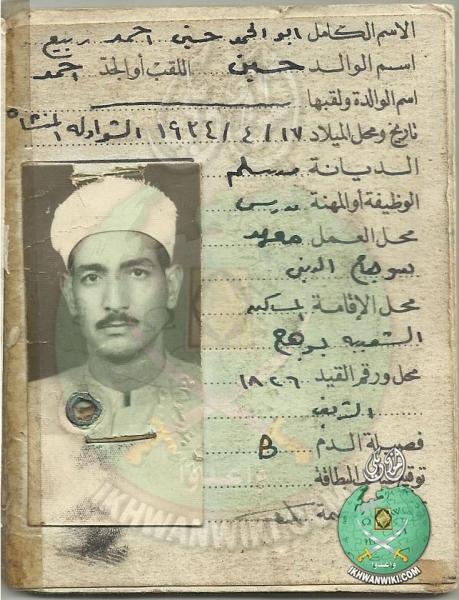 الاسم الكامل ابو الحمد حسين احمد ربيع
اسم الوالد حسين اللقب أو الجد احمد
اسم الوالدة ولقبها
تاريخ ومحل الميلاد ١٧/٤/١٩٢٤ الشواوله المنشاه
الديانة مسلم
الوظيفة أو المهنة مدرس
محل العمل معهد
سوهاج الدينى
محل الاقامة المساكن
الشعبيه بسوهاج
محل ورقم القيد ١٨٢٦
فصيلة الدم B
واعدوا
IKHWANWIKI.COM